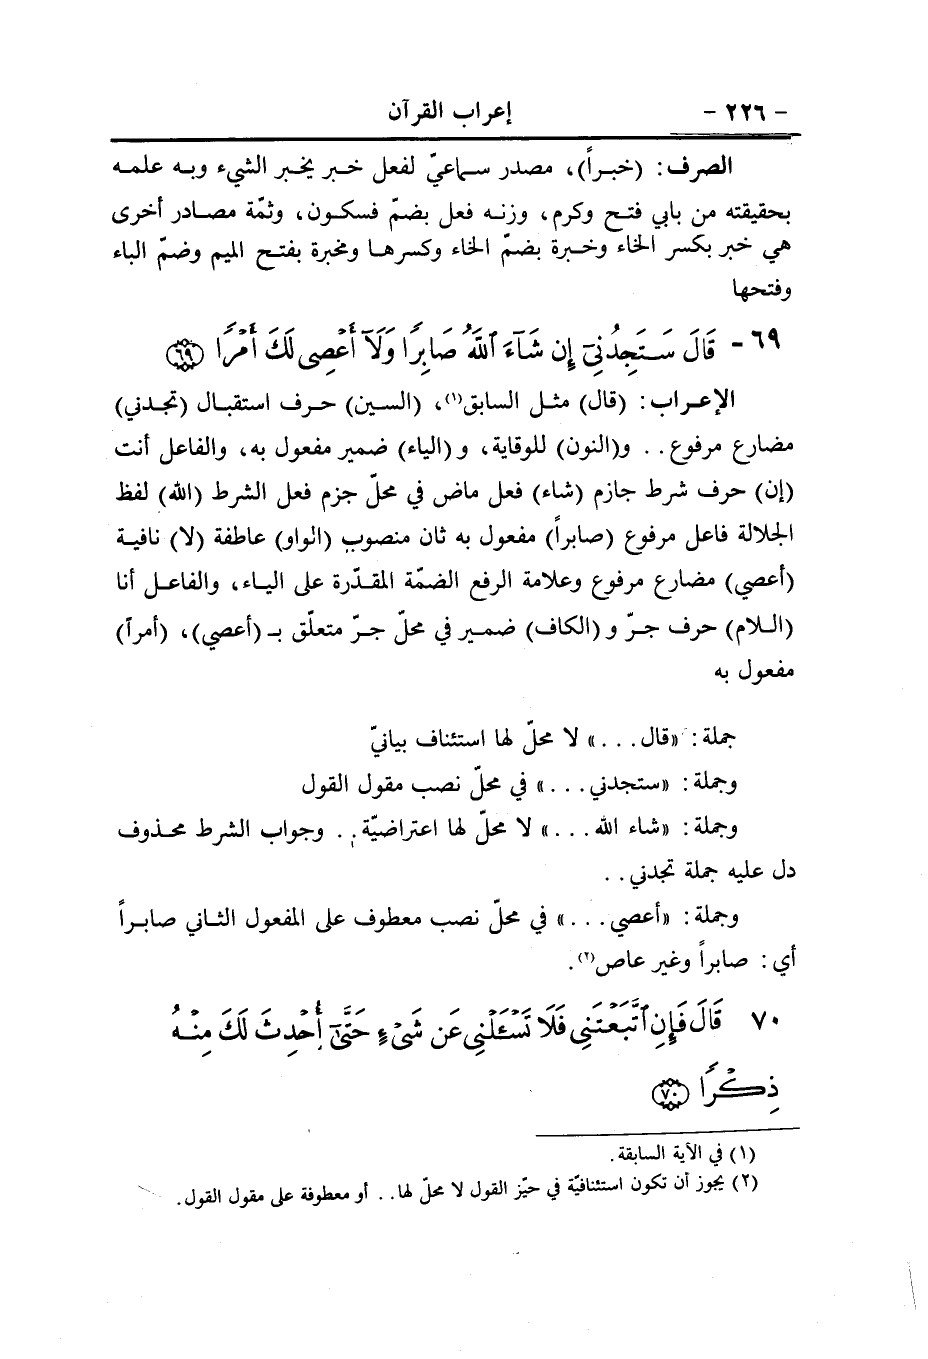 - ٢٢٦ - إعراب القرآن
الصرف: (خبراً)، مصدر سماعيّ لفعل خبر يخبر الشيء وبه علمه
بحقيقته من بابي فتح وكرم، وزنه فعل بضمّ فسكون، وثمّة مصادر أخرى
هي خبر بكسر الخاء وخبرة بضمّ الخاء وكسرها ومخبرة بفتح الميم وضمّ الباء
وفتحها
٦٩ - قَالَ سَتَجِدُنِىٓ إِن شَآءَ ٱللَّهُ صَابِرًا وَلَآ أَعْصِى لَكَ أَمْرًا ﴿٦٩﴾
الإعراب: (قال) مثل السابق(١)، (السين) حرف استقبال (تجدني)
مضارع مرفوع.. و(النون) للوقاية، و(الياء) ضمير مفعول به، والفاعل أنت
(إن) حرف شرط جازم (شاء) فعل ماض في محلّ جزم فعل الشرط (الله) لفظ
الجلالة فاعل مرفوع (صابراً) مفعول به ثان منصوب (الواو) عاطفة (لا) نافية
(أعصي) مضارع مرفوع وعلامة الرفع الضمّة المقدّرة على الياء، والفاعل أنا
(اللام) حرف جرّ و(الكاف) ضمير في محلّ جرّ متعلّق بـ (أعصي)، (أمراً)
مفعول به
جملة: «قال...» لا محلّ لها استئناف بيانيّ
وجملة: «ستجدني...» في محلّ نصب مقول القول
وجملة: «شاء الله...» لا محلّ لها اعتراضيّة.. وجواب الشرط محذوف
دل عليه جملة تجدني..
وجملة: «أعصي...» في محلّ نصب معطوف على المفعول الثاني صابراً
أي: صابراً وغير عاص(٢).
٧٠ قَالَ فَإِنِ ٱتَّبَعْتَنِى فَلَا تَسْـَٔلْنِى عَن شَىْءٍ حَتَّىٰٓ أُحْدِثَ لَكَ مِنْهُ
ذِكْرًا ﴿٧٠﴾
(١) في الآية السابقة.
(٢) يجوز أن تكون استئنافيّة في حيّز القول لا محلّ لها.. أو معطوفة على مقول القول.